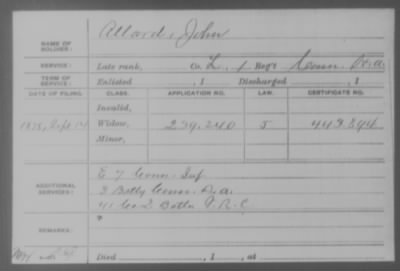 Allard, John
NAME OF SOLDIER:
SERVICE: Late rank, Co. L, 1 Reg't Conn. H.A.
TERM OF SERVICE: Enlisted , 1 Discharged , 1
DATE OF FILING. CLASS. APPLICATION NO. LAW. CERTIFICATE NO.
Invalid,
1878, Sept 14 Widow, 239,240 5 443.894
Minor,
ADDITIONAL SERVICES:
E 7 Conn. Inf.
3 Batty Conn. L.A.
41 Co 2 Batln V.R.C.
REMARKS:
Died , 1 , at